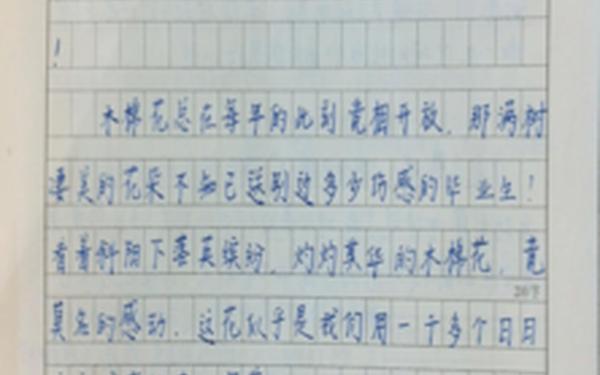 ！
木棉花总在每年的此刻竞相开放，那满树
凄美的花朵不知已送别过多少伤感的毕业生！
看着斜阳下落英缤纷，灼灼其华的木棉花，竟
莫名的感动，这花似乎是我们用一千多个日日